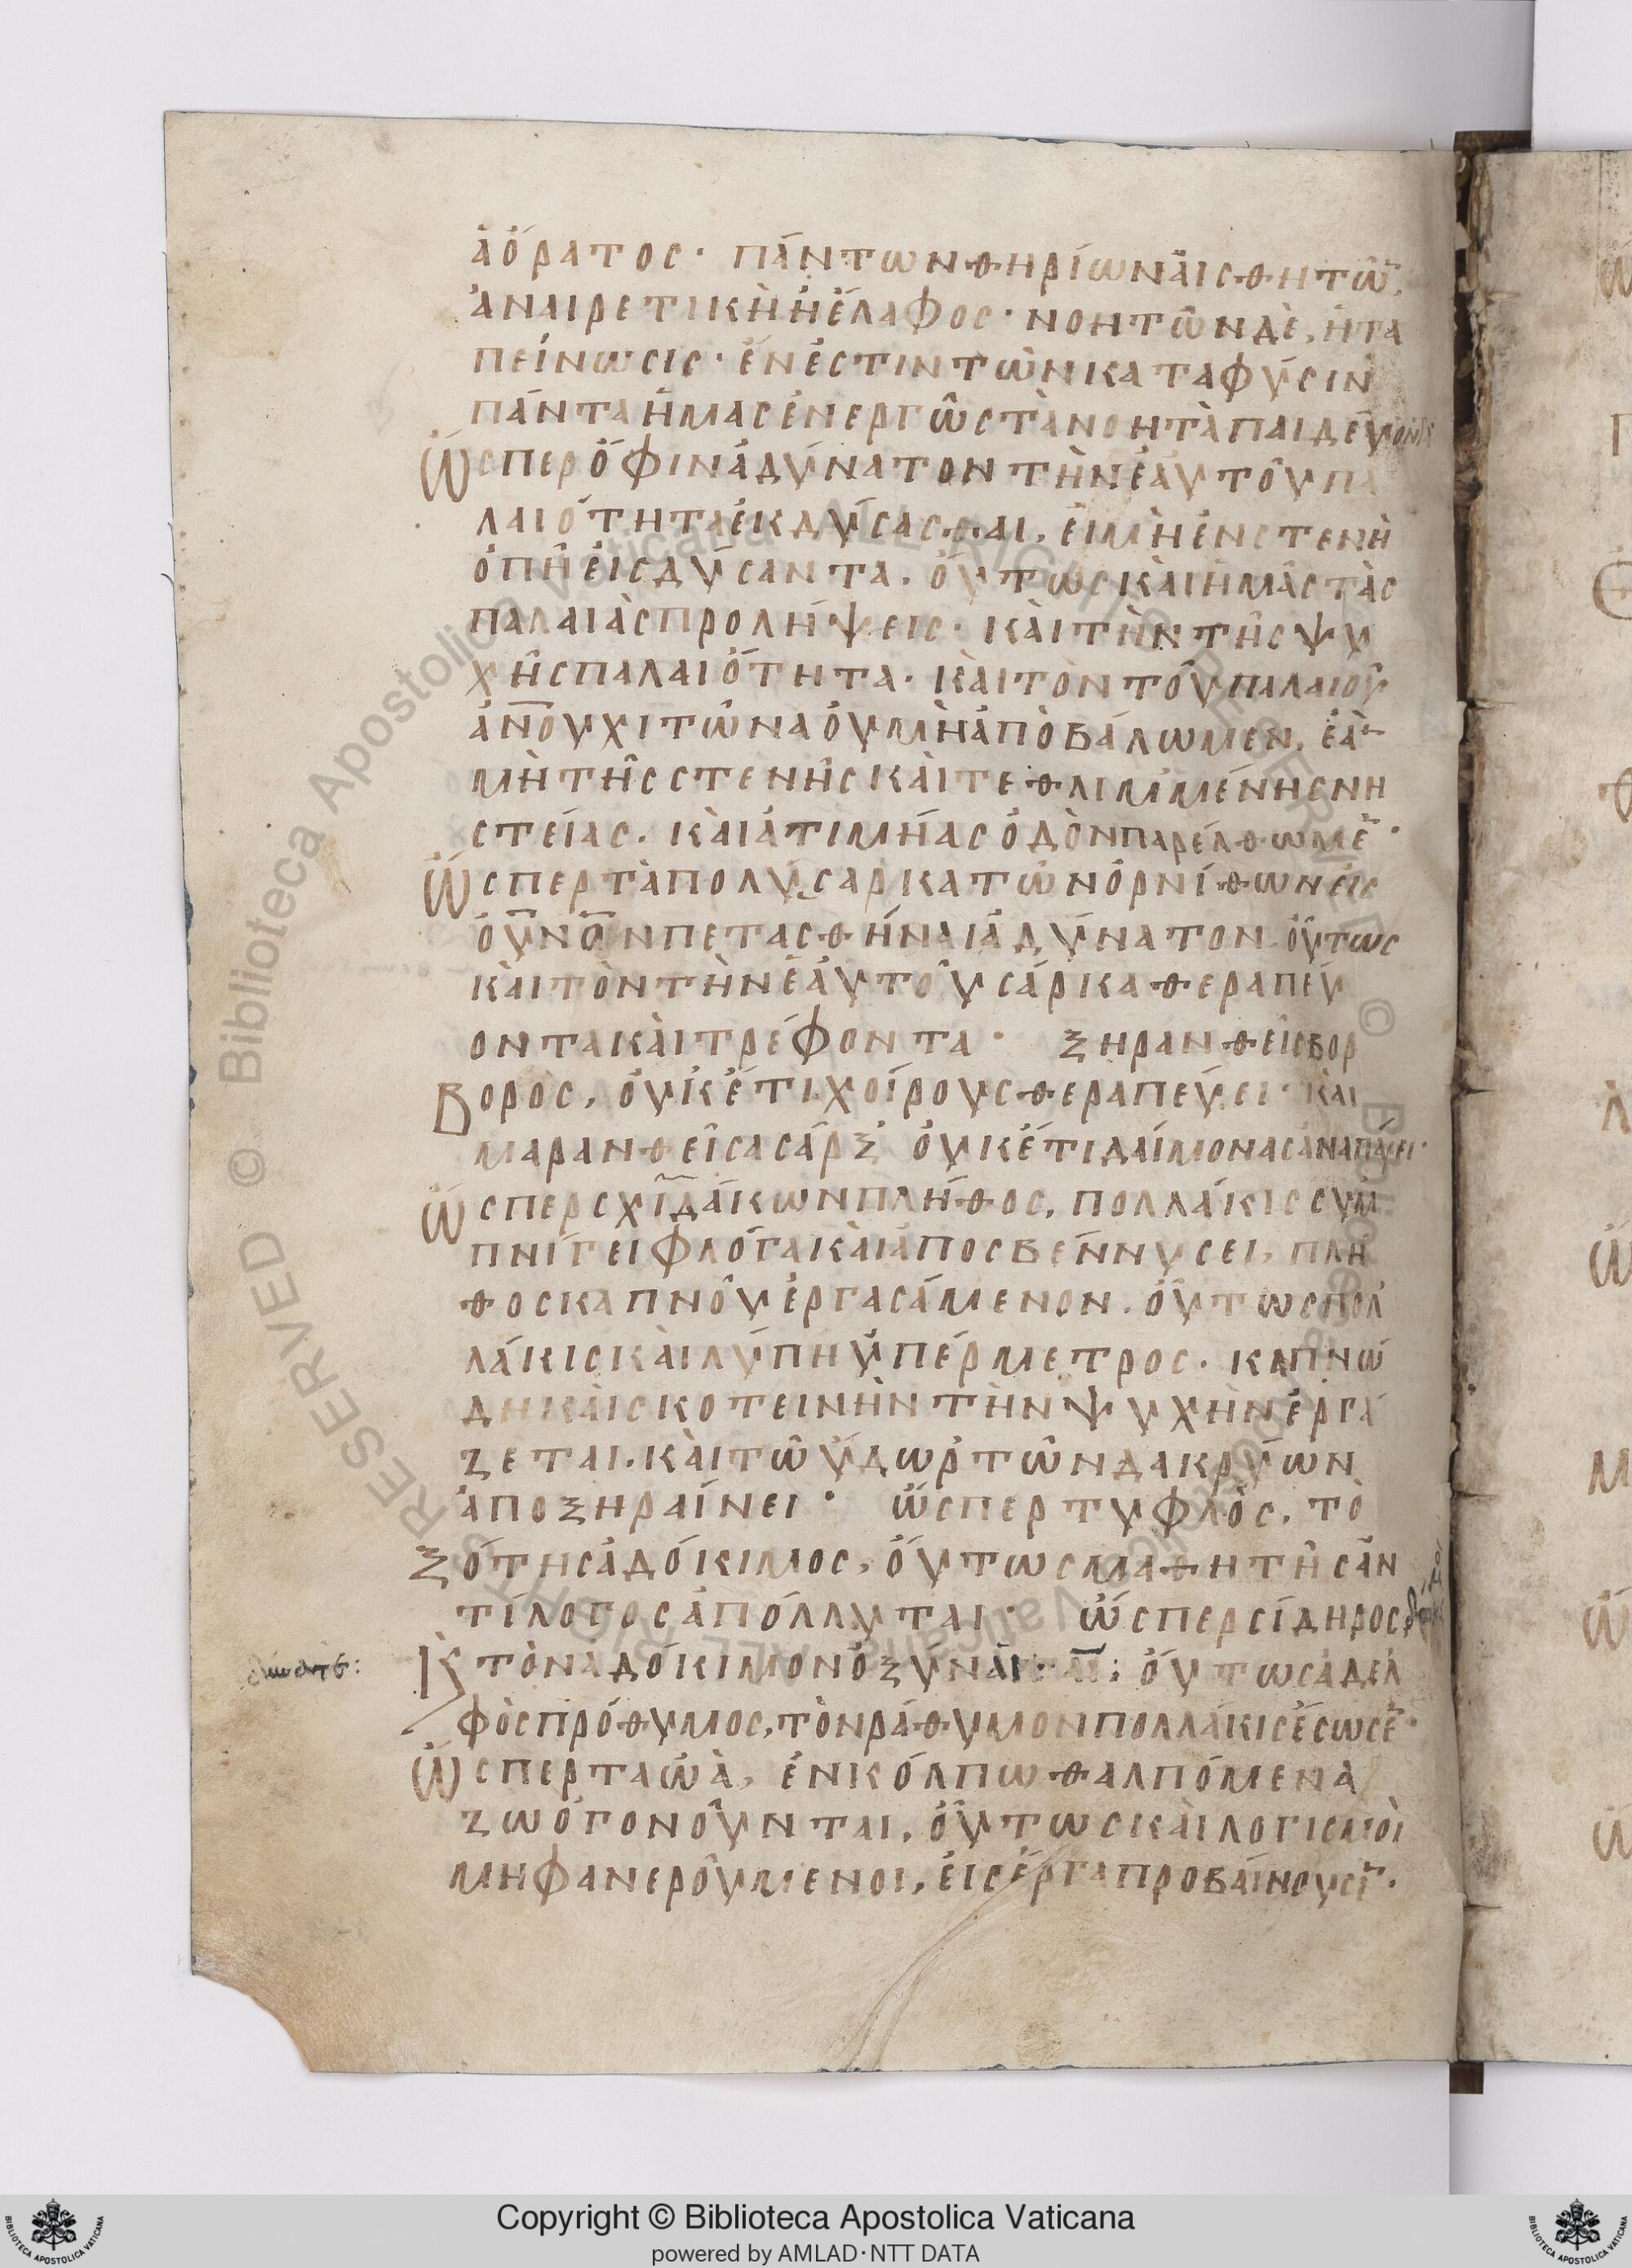 ἀόρατος· πάντων θηρίων ἀισθητῶ̅,
ἀναιρετικὴ ἡ ἔλαφος· νοητῶν δὲ, ἡ τα
πείνωσις· ἔνεστιν τῶν κατα φύσιν
πάντα ἡμας ἐνεργῶς τὰ νοητὰ παιδέυοντα
Ὥσπερ ὄφιν ἀδύνατον τὴν ἑαυτοῦ πα
λαιότητα ἐκδύσασθαι, ἐι μὴ ἐν στενῆ
ὀπῆ ἐισδύσαντα. ὅυτως κὰι ἡμᾶς τὰς
παλαιὰς προλήψεις· κὰι τὴν τῆς ψυ
χῆς παλαιότητα· κὰι τὸν τοῦ παλαιοῦ
ἀνου χιτῶνα ὀυ μὴ ἀπὸβάλωμεν, ἐὰ̅
μὴ τῆς στενῆς κὰι τεθλιμμένης νη
στείας. κὰι ἀτιμίας ὁδὸν παρέλθωμε̅·
Ὥσπερ τὰ πολύσαρκα τῶν ὀρνίθων ἐις
ὀυνον πετασθῆναι ἀδύνατον. ὅυτως
κὰι τὸν τὴν ἑαυτοῦ σάρκα θεραπέυ
οντα κὰι τρέφοντα· ξηρανθεὶς βορ
Βορὸς, ὀυκέτι χοίρους θεραπέυει· κὰι
μαρανθεῖσα σάρξ ὀυκέτι δαίμονας ἀναπάυει·
Ὥσπερ σχιδάκων πλῆθος, πολλάκις συμ
πνίγει φλόγα κὰι ἀποσβέννυσει, πλῆ
θος καπνοῦ ἐργασάμενον. ὅυτως πολ
λάκις κὰι λύπη ὑπέρμετρος. καπνώ
δη κὰι σκοτεινὴν τὴν ψυχὴν ἐργά
ζεται. κὰι τῶ ὕδωρ τῶν δακρύων
ἀποξηραίνει· ὥσπερ τυφλὸς, το
Ξότης ἀδόκιμος, ὅυτως μαθητὴς ἀν
τίλογος ἀπόλλυται· ὥσπερ σίδηρος
τὸν ἀδόκιμον ὀξύναι ὅυτως ἀδελ
φὸς πρόθυμος, τὸν ράθυμον πολλάκις ἔσωσε̅·
Ὥσπερ τα ὠὰ, ἐν κόλπω θαλπόμενα
ζωογονοῦνται, ὅυτως κὰι λογισμοὶ
μὴ φανερούμενοι, ἐις έργα προβαίνουσι̅·
Copyright © Biblioteca Apostolica Vaticana
powered by AMLAD·NTT DATA